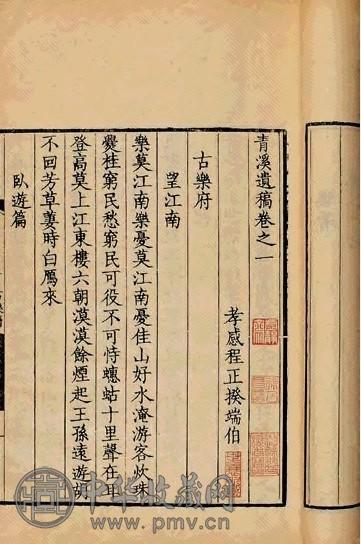 青溪遺稿卷之一
孝感程正揆端伯
古樂府
望江南
樂莫江南樂憂莫江南憂佳山好水淹游客炊珠
爨桂窮民愁窮民可役不可恃蟪蛄十里聲在耳
登高莫上江東樓六朝漠漠餘煙起王孫遠遊胡
不回芳草萋時白鴈來
臥遊篇
中华收藏网
www.pmv.cn